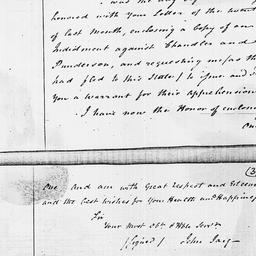 honored with Your Letter of the twent
of last Month, enclosing a Copy of an
Indictment against Chandler and
Punderson, and requesting me/as th
had fled to this State/ to issue and
You a warrant for their apprehension
I have now the Honor of enclos
(3
One and am with Great Respect and Esteem
and the best wishes for Your Health and Happiness
Sir
Your Most Obt. & Hble Servt.
/Signed/ John Jay